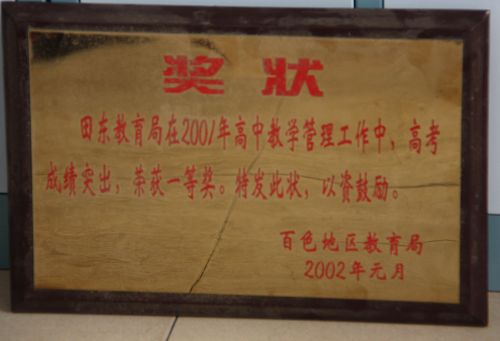 奖状
田东教育局在2001年高中教学管理工作中，高考
成绩突出，荣获一等奖。特发此状，以资鼓励。
百色地区教育局
2002年元月